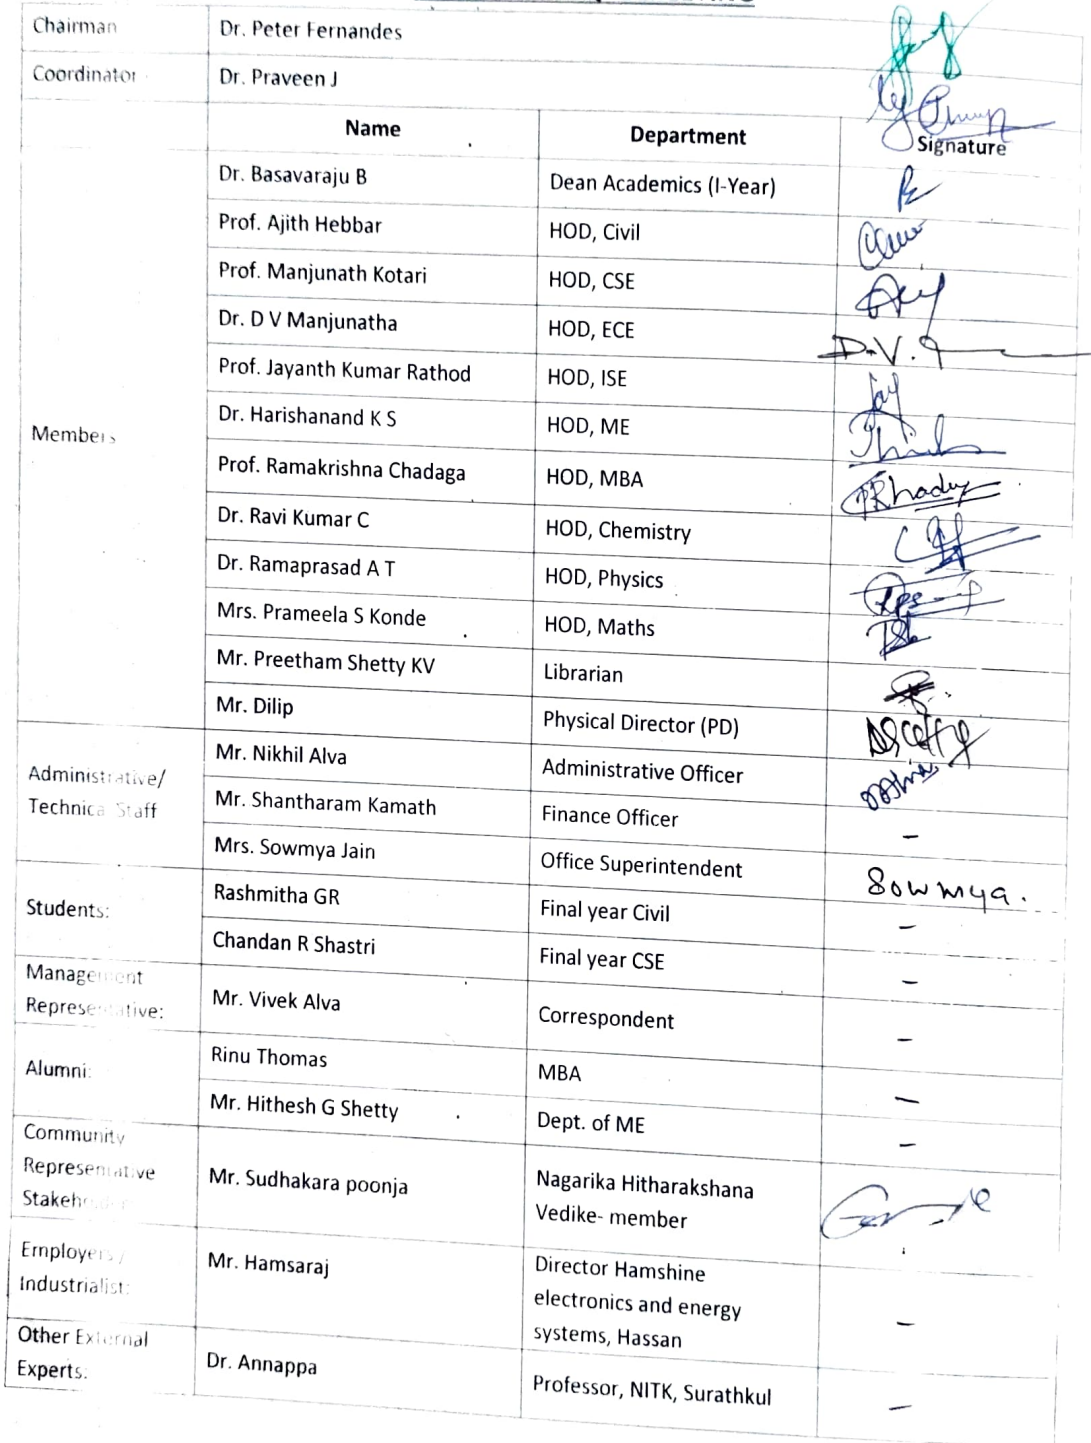 Chairman Dr. Peter Fernandes
Coordinator Dr. Praveen J
Name Department Signature
Members
Dr. Basavaraju B Dean Academics (I-Year)
Prof. Ajith Hebbar HOD, Civil
Prof. Manjunath Kotari HOD, CSE
Dr. D V Manjunatha HOD, ECE D.V.
Prof. Jayanth Kumar Rathod HOD, ISE Jay
Dr. Harishanand K S HOD, ME
Prof. Ramakrishna Chadaga HOD, MBA
Dr. Ravi Kumar C HOD, Chemistry
Dr. Ramaprasad A T HOD, Physics
Mrs. Prameela S Konde HOD, Maths
Mr. Preetham Shetty KV Librarian
Mr. Dilip Physical Director (PD)
Administrative/
Technical Staff
Mr. Nikhil Alva Administrative Officer
Mr. Shantharam Kamath Finance Officer –
Mrs. Sowmya Jain Office Superintendent Sowmya.
Students:
Rashmitha GR Final year Civil –
Chandan R Shastri Final year CSE –
Management
Representative:
Mr. Vivek Alva Correspondent –
Alumni:
Rinu Thomas MBA –
Mr. Hithesh G Shetty Dept. of ME –
Community
Representative
Mr. Sudhakara poonja Nagarika Hitharakshana
Vedike- member
Employers/
Industrialist:
Mr. Hamsaraj Director Hamshine
electronics and energy
systems, Hassan –
Other External
Experts:
Dr. Annappa Professor, NITK, Surathkul –